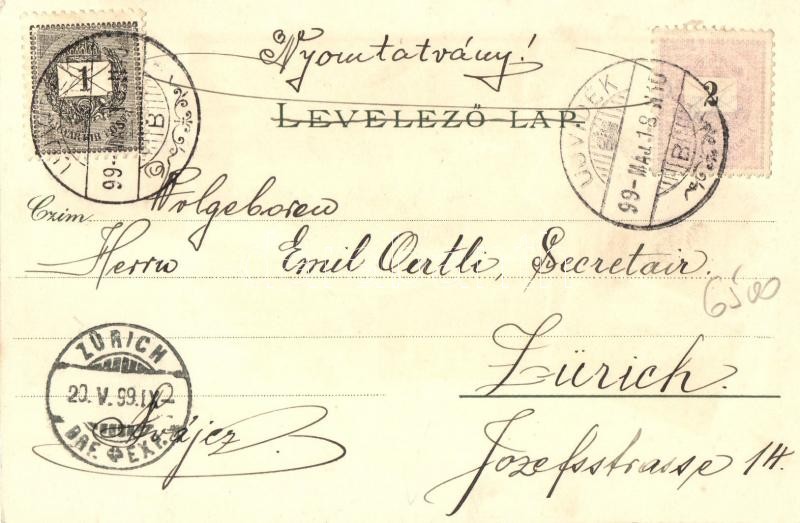 Nyomtatvány!
LEVELEZŐ-LAP.
1
2
UDVARDÉK
99-MÁJ.18.
B
99-MÁJ
B
Czim Wolgeboren
Herrn Emil Oertli, Secretair.
6500
Zürich.
ZÜRICH
20.V.99.IX-
BRF. EXP.
Svájcz.
Jozefsstrasse 14.